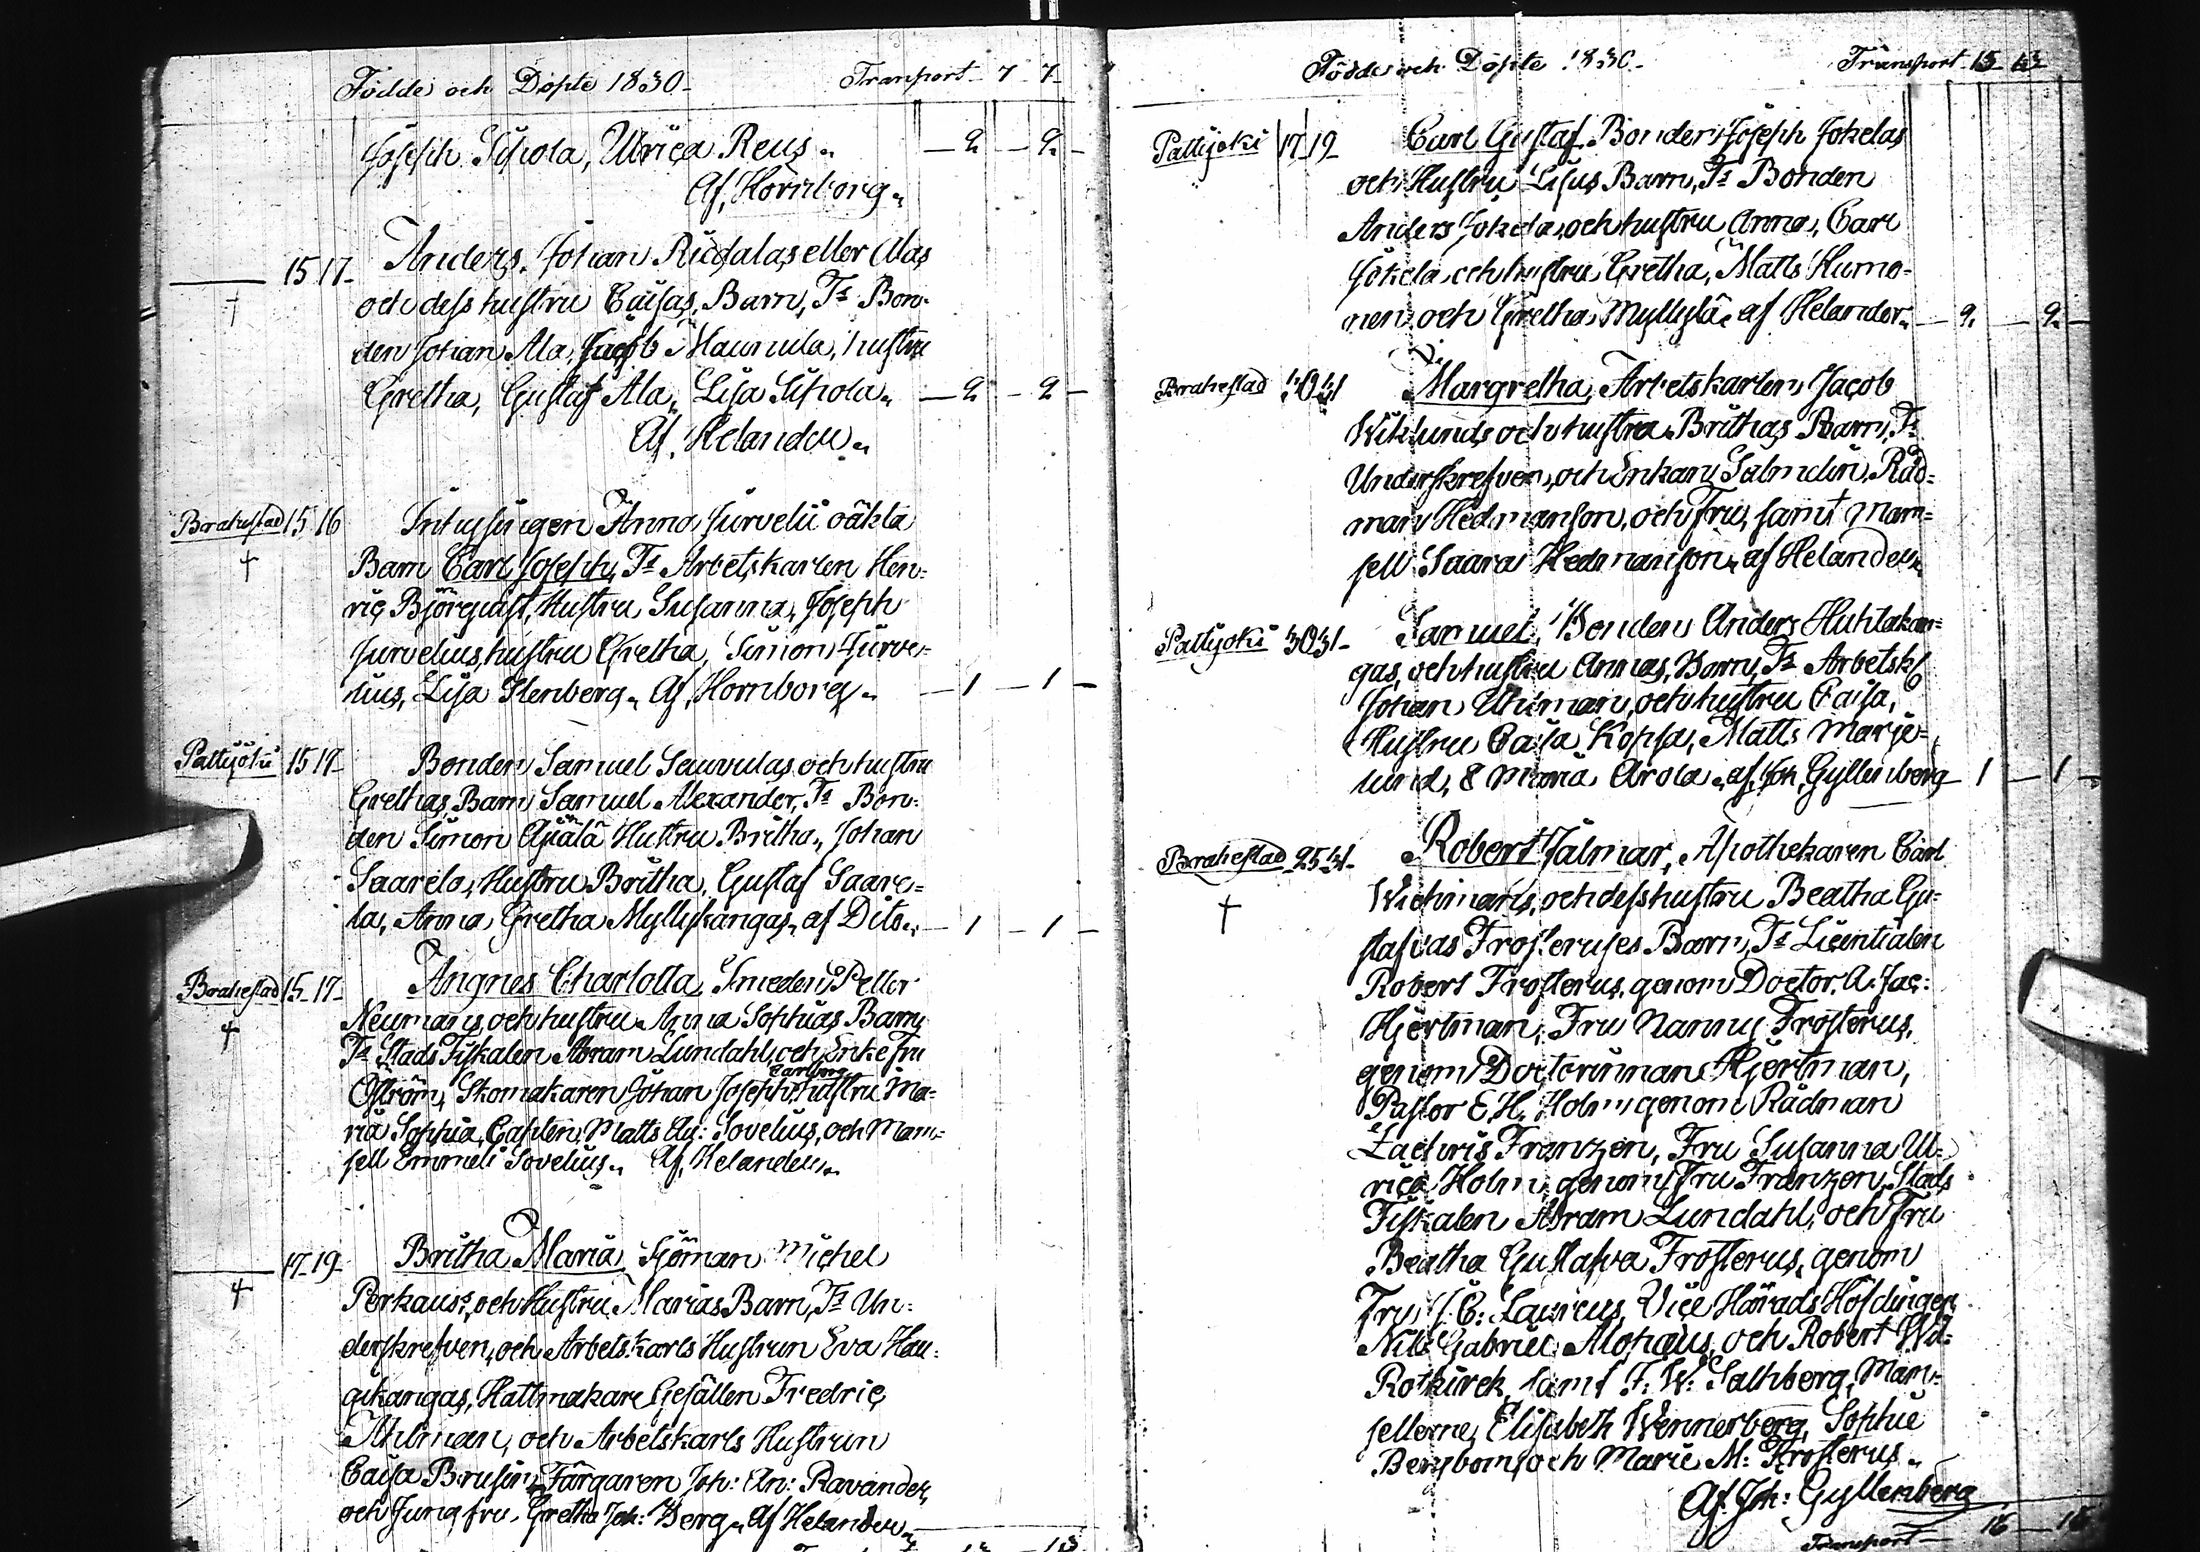 Födde och Döpte 1830. Transport 7 7
Joseph Sipola, Ulrica Reus. 2 2
Af, Hornborg.
15 17 Anders, Johan eller Alas
och dess hustru Caisas, Barn, Ts Bon-
den Johan Ala, Jacob hustru
Gretha, Gustaf Ala, Lisa Sipola. 2 2
Af, Helander.
Brahestad 15 16 Inhysingen Anna Jurvelii oäkta
Barn Carl Joseph, Ts Arbetskarlen Hen-
ric Björqvist, Hustru Susanna, Joseph
Jurvelius, hustru Gretha, Simon Jurve-
lius, Lisa Stenberg. Af, Hornborg. 1 1
Pattijoki 15 17 Bonden Samuel Sauvulas och hustru
Grethas, Barn Samuel Alexander, Ts Bon-
den Simon Hustru Britha, Johan
Saarela, Hustru Britha, Gustaf Saare-
la, Anna Gretha Myllykangas, af Dito. 1 1
Brahestad 15 17 Angnes Charlotta, Smeden Petter
Neumans, och hustru Anna Sophias Barn,
Ts Stads Fiskalen Abram Lundahl, och Enke Fru
Öström, Skomakaren Johan Joseph Carlborg, hustru Ma-
ria Sophia, Matts Sovelius, och Mam-
sell Emmeli Sovelius. Af, Helander.
17 19 Britha Maria, Sjöman Michel
och Hustru Marias Barn, Ts Un-
derskrefven, och Arbetskarls Hustrun Eva Hau-
gikangas, Hattmakare Gesällen Fredric
Ahlman, och Arbetskarls Hustrun
Caisa Brusin, Färgaren Joh: An: Ravander,
och Jungfru Gretha Joh: Berg. Af Helander.
Födde och Döpte 1830. Transport 15
Pattijoki 17 19 Carl Gustaf, Bonden Joseph Jokelas
och Hustru Lisas Barn, Ts Bonden
Anders Jokela, och hustru Anna, Carl
Jokela och hustru Gretha, Matts Humo-
nen och Gretha Myllylä. af Helander. 2 2
Brahestad 30 31 Margretha, Arbetskarlen Jacob
Wiklunds och hustru Brithas Barn, Ts
Underskrefven, och Enkan Salmelin, Råd-
man Hedmanson, och Fru, samt Mam-
sell Saara Hedmanson, af Helander.
Pattijoki 30 31 Samuel, Bonden Anders Huhtakan-
gas, och hustru Annas, Barn, Ts Arbetsk
Johan Uhlman, och hustru Caisa,
Hustru Caisa Kopsa, Matts Marje-
lund, & Maria Arola. af, Joh, Gyllenberg 1 1
Brahestad 25 31 Robert Jalmar, Apothekaren Carl
Wichmans, och dess hustru Beatha Gu-
stafvas Frosteruses Barn, Ts Licentiaten
Robert Frosterus, genom Doctor A: Jac:
Hjertman, Fru Nanny Frosterus,
genom Doctorinnan Hjertman,
Pastor E. H. Holm, genom Rådman
Zachris Franzen, Fru Susanna Ul-
rica Holm, genom Fru Franzen, Stads
Fiskalen Abram Lundahl, och Fru
Beatha Gustafva Frosterus, genom
Fru J. C: Laurous, Vice Härads Höfdingen
Nils Gabriel och Robert Wil:
Rotkirck, samt F. W: Salhberg, Mam-
sellerne, Elisabeth Wennerberg, Sophie
Bergbom, och Marie M: Frosterus.
Af, Joh: Gyllenberg
Transport 16 16